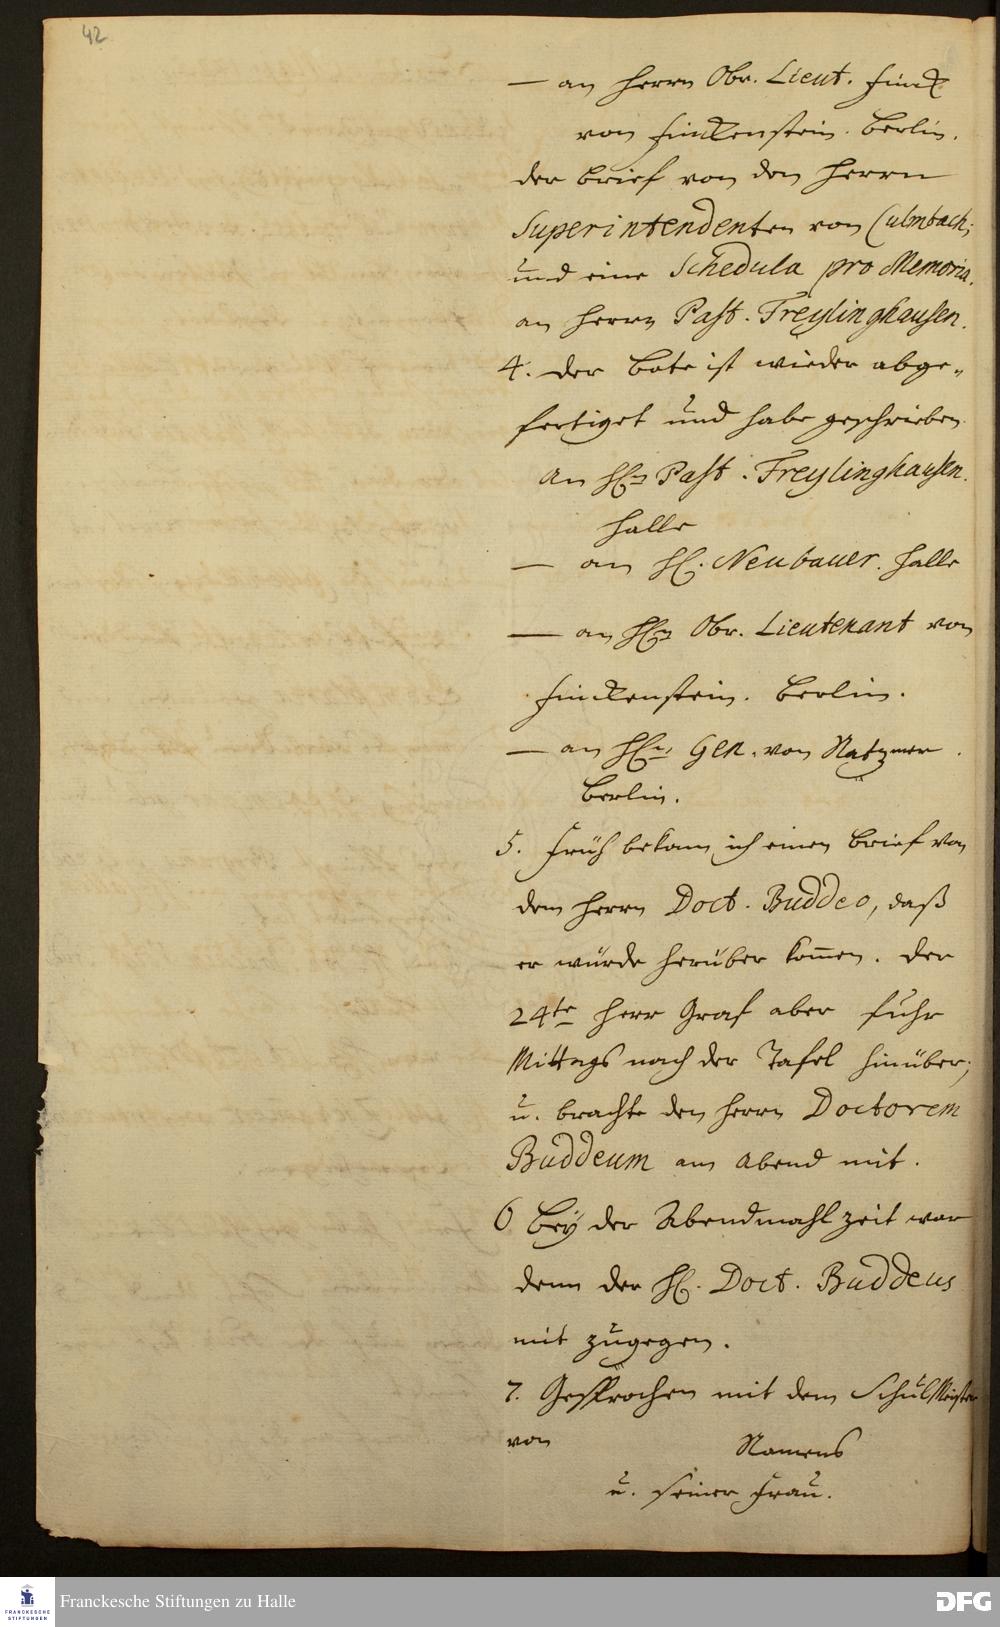 42
— an Herrn Obr. Lieut. Finck
von Finckenstein. Berlin.
der brief von dem Herrn
Superintendenten von Culmbach;
und eine Schedula pro Memoria.
an Herrn Past. Freylinghausen.
4. Der bote ist wieder abge-
fertiget und habe geschrieben
an HEn Past. Freylinghausen.
Halle
— an HE. Neubauer. Halle
— an HEn Obr. Lieutenant von
Finckenstein. Berlin.
— an HEn. Gen. von Natzmer.
Berlin.
5. Früh bekam ich einen brief von
dem Herrn Doct. Buddeo, daß
er würde herüber kom̄en. Der
24te Herr Graf aber fuhr
Mittags nach der Tafel hinüber;
u. brachte den Herrn Doctorem
Buddeum am Abend mit.
6 Bey der Abendmahlzeit war
denn der HE. Doct. Buddeus
mit zugegen.
7. Gesprochen mit dem SchulMeister
von Namens
u. seiner Frau.
FRANCKESCHE
STIFTUNGEN
Franckesche Stiftungen zu Halle
DFG